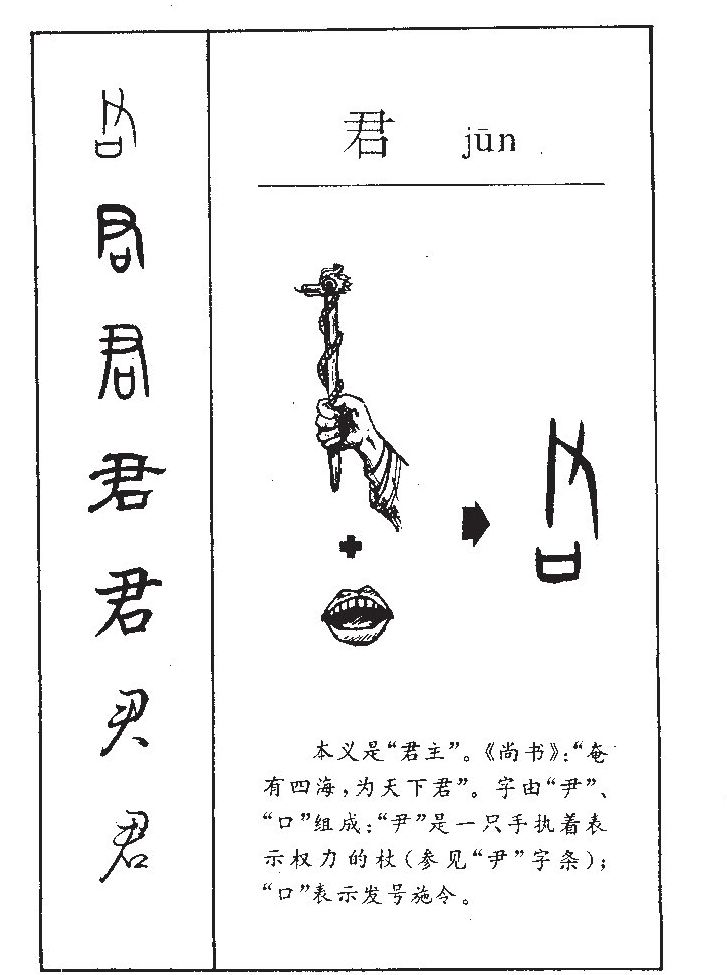 君 jūn
本义是“君主”。《尚书》：“奄
有四海，为天下君”。字由“尹”、
“口”组成：“尹”是一只手执着表
示权力的杖（参见“尹”字条）；
“口”表示发号施令。
君
君
君
君
君
君
君